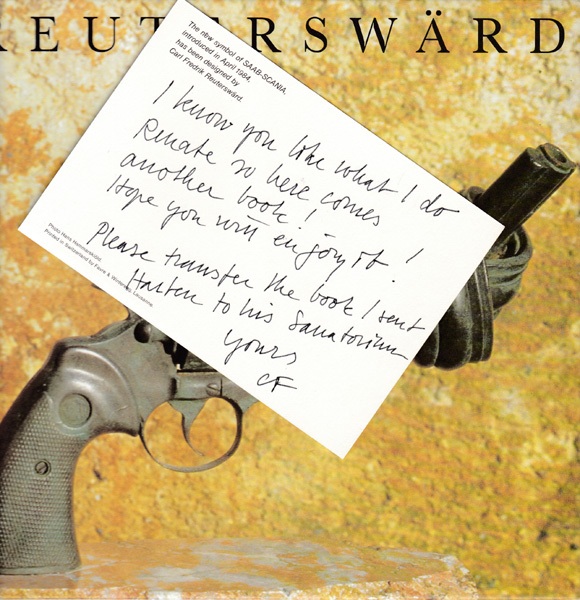 REUTERSWÄRD
The new symbol of SAAB-SCANIA,
introduced in April 1984,
has been designed by
Carl Fredrik Reuterswärd.
I know you like what I do
Renate so here comes
another book!
Hope you will enjoy it!
Please transfer the book I sent
Harten to his Sanatorium
Yours
CF
Photo Hans Hammarskiöld
Printed in Switzerland by Favre & Winteregg, Lausanne